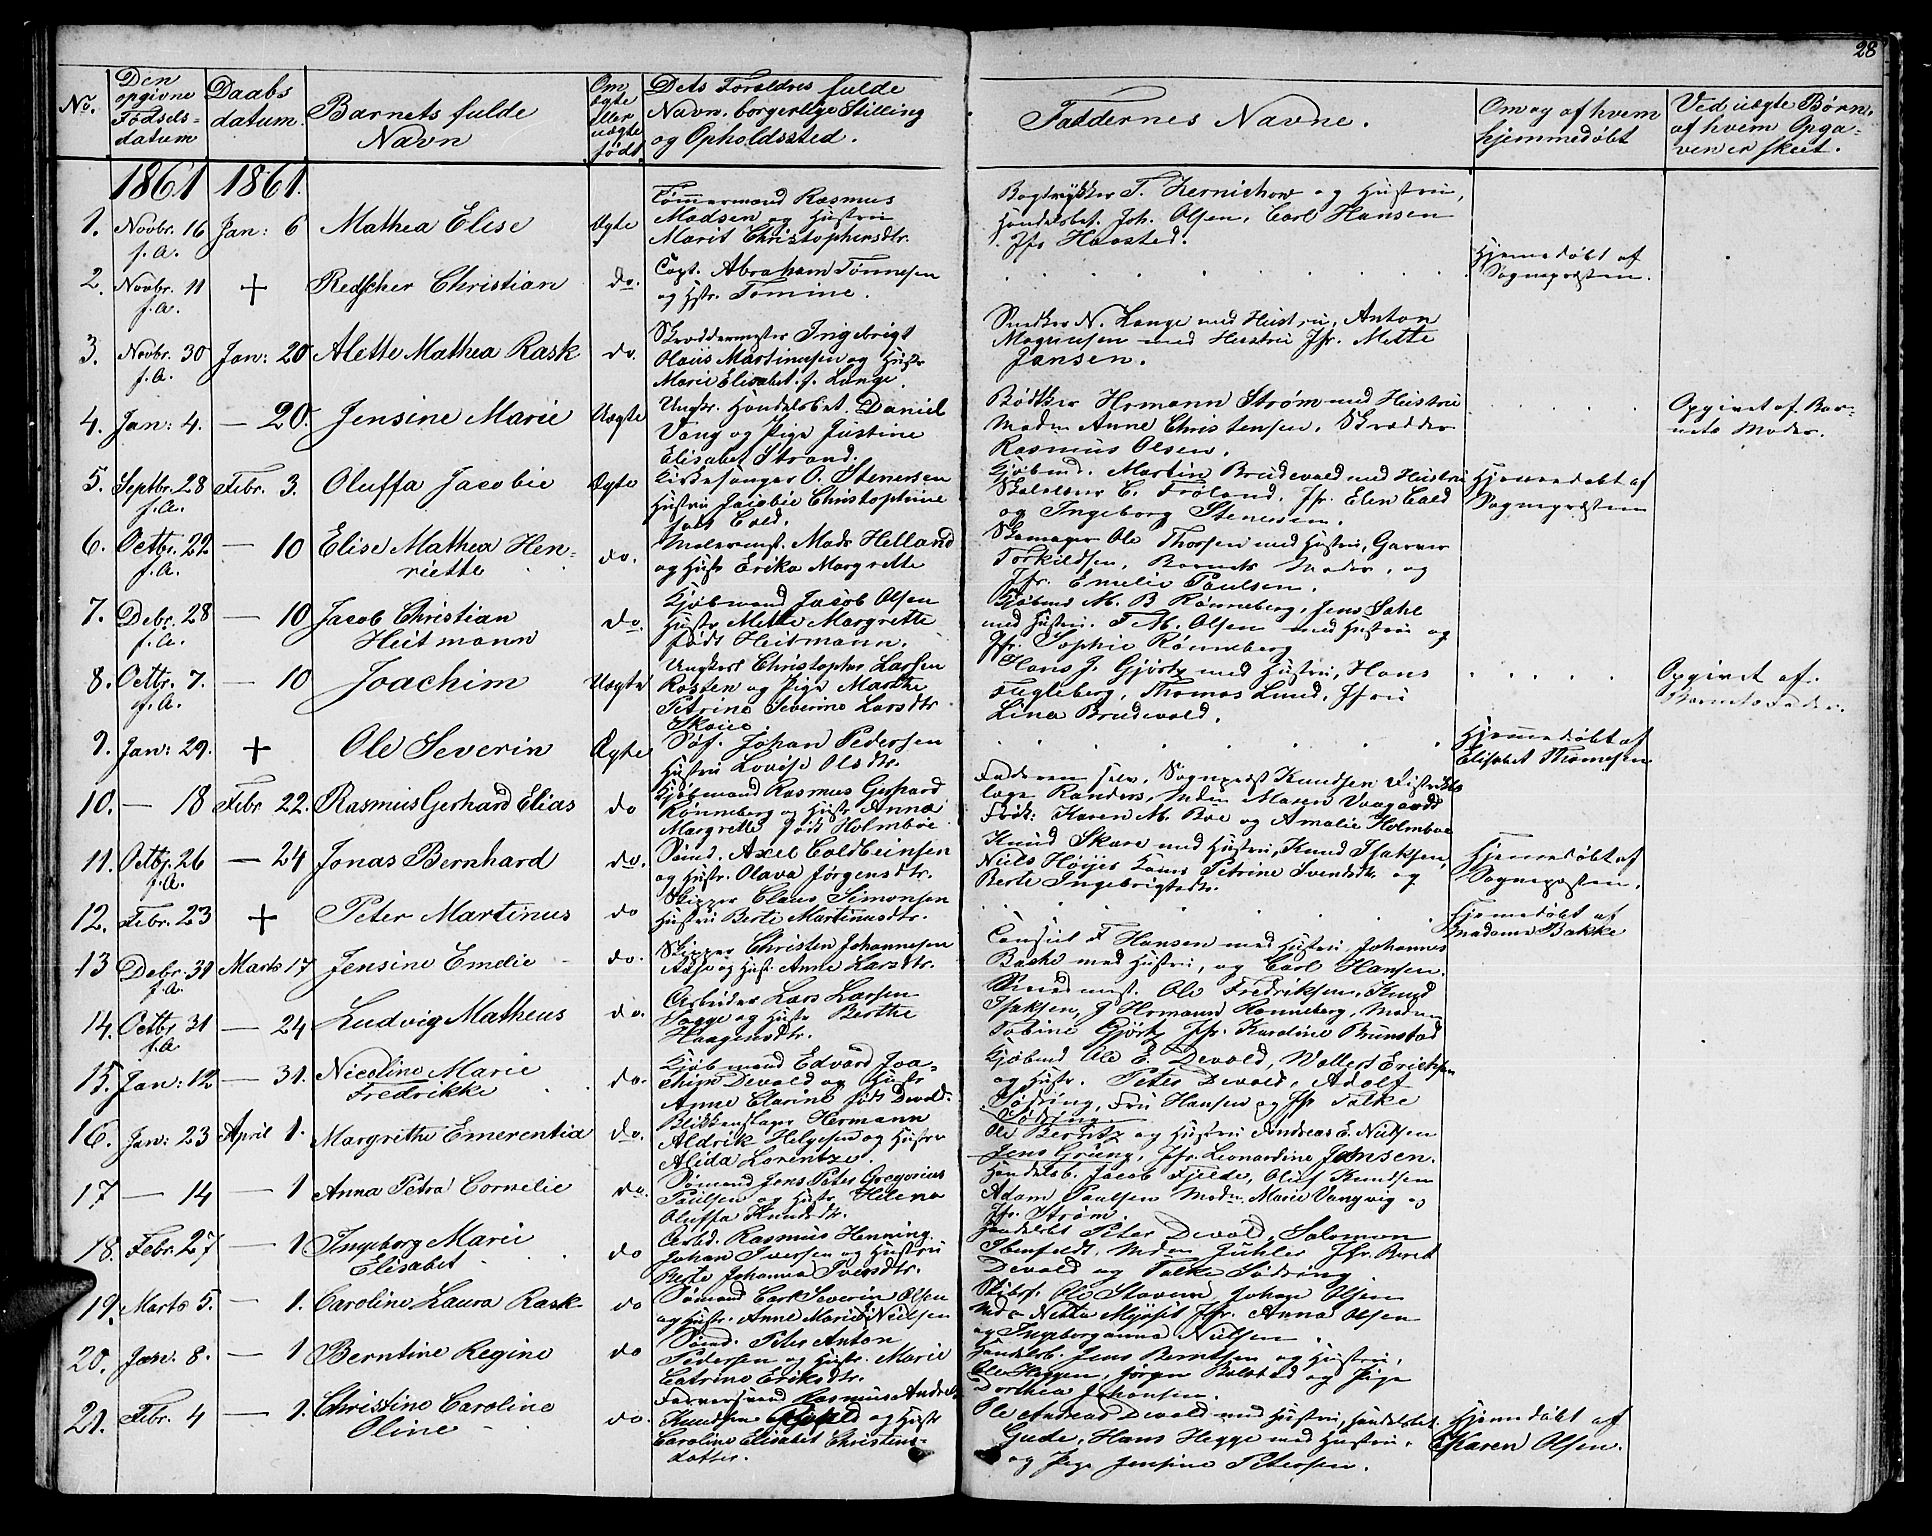 28
No.
Den opgivne Fødsels-datum
Daabs datum
Barnets fulde Navn
Om ægte eller uægte født
Dets Foreldres fulde Navn, borgerlige Stilling og Opholdssted.
Faddernes Navne.
Om og af hvem hjemmedøbt
Ved uægte Børn, af hvem Opga-ven er skeet.
1861 1861.
1. Novbr. 16 f.A. Jan: 6 Mathea Elise Ægte
Tømmermand Rasmus
Madsen og Hustru
Marit Christophersdtr.
Bogtrykker T. og Hustru,
Handelsbet. Joh. Olsen, Carl Hansen
Jfr
2. Novbr. 11 f.A. + Christian do.
Capt. Abraham Tønnesen
og Hstr. Tomine.
Hjemedøbt af
Sognepræsten.
3. Novbr. 30 f.A. Jan: 20 Alette Mathea Rask do.
Skræddermester Ingebrigt
Olaus Martinusen og Hustr
Marie Elisabet f. Lange.
Snedker N. Lange med Hustru, Anton
Magnusen med Hustru Jfr. Mette
Jansen.
4. Jan: 4. — 20. Jensine Marie Uægte
Ungkr. Handelsbet. Daniel
Vang og Pige Justine
Elisabet Strand.
Bødker Hermann Strøm med Hustru
Madm Anne Christensen, Skrædder
Rasmus Olsen.
Opgivet af Bar-
nets Moder.
5. Septbr. 28 f.A. Febr. 3. Oluffa Jacobie Ægte
Kirkesanger O. Stenersen
Hustru Jacobie Christophine
født Cold.
Kjøbmd. Martin Brudevold med Hustru
C. Frøland, Jfr. Elen Cold
og Ingeborg Stenersen.
Hjemmedøbt af
Sognepræsten
6. Octbr. 22 f.A. — 10 Elise Mathea Hen-
riette do.
Malermst. Mads Helland
og Hustr Erika Margrette
Skomager Ole Thorsen med Hustru, Garver
Torkildsen, Barnets Moder, og
Jfr. Emelie Paulsen.
7. Debr. 28 f.A. — 10 Jacob Christian
Heitmann do.
Kjøbmand Jacob Olsen
Hustr. Mette Margrette
født Heitmann.
Kjøbmd M. B Rønneberg, Jens
med Hustru. T. M. Olsen med Hustru og
Jfr. Sophie Rønneberg
8. Octbr. 7. f.A. — 10 Joachim Uægte
Ungkarl Christopher Larsen
Rosten og Pige Marthe
Petrine Severine Larsdtr.
Hans J. Gjørtz med Hustru, Hans
Fugleberg, Thomas Lund, Jfr
Lina Brudevold.
Opgivet af
Barnets Fader.
9. Jan: 29. + Ole Severin Ægte
Søf. Johan Pedersen
Hustru Lovise Olsdtr.
Hjemmedøbt af
Elisabet
10. — 18 Febr 22. Rasmus Gerhard Elias do
Kjøbmand Rasmus Gerhard
Rønneberg og Hustr Anna
Margrette født Holmboe
Faderen selv, Sognepræst Knudsen
Randers, Mdm Maren
Frøk: Karen M. Boe og Amalie Holmboe
11. Octbr. 26 f.A. — 24 Jonas Bernhard do.
Sømd. Axel Coldbeinsen
og Hustr. Olava Jørgensdtr.
Knud Skare med Hustru, Knud Isaksen,
Niels Petrine Svendsdtr og
Berte Ingebrigtsdtr.
Hjemmedøbt af
Sognepræsten.
12. Febr. 23 + Peter Martinus do
Skipper Claus Simonsen
Hustru Berte Martinusdtr.
Hjemmedøbt af
Madame Bakke
13 Debr. 31 f.A. Marts 17 Jensine Emelie do.
Skipper Christen Johannesen
og Hust. Anne Larsdtr.
Consul F Hansen med Hustru, Johannes
med Hustru, og Carl Hansen.
14. Octbr. 31 f.A. — 24 Ludvig Matheus do.
Arbeider Lars Larsen
og Hustr Berthe
Haagensdtr.
Ole Fredriksen, Knud
Isaksen, J Hermann Rønneberg, Madm
Tobine Gjørtz Jfr. Karoline Brunstad
15. Jan: 12 — 31. Nicoline Marie
Fredrikke do.
Kjøbmand Edvard Joa-
chim Devold og Hustr
Anne Clarine født Devold
Kjøbmd Ole E. Devold, Vollert Ericksen
og Hustr. Peter Devold, Adolf
Sødring, Fru Hansen og Jfr Tolke
Sødring
16. Jan: 23 April 1. Margrethe Emerentia do.
Blikkenslager Hermann
Aldrik Helgesen og Hustru
Alida Lorentze.
Ole Berntz og Hustru Andreas E. Nielsen
Jens Grüng, Jfr. Leonardine Jansen.
17 — 14 — 1 Anna Petra Cornelie do.
Sømand Jens Peter Gregorius
Paulsen og Hustr. Helena
Oluffa Knudsdtr.
Handelsb. Jacob Fjelde, Oluf Knudsen
Adam Paulsen Madm. Marie Vangvig og
Jfr. Strøm.
18. Febr. 27 — 1 Ingeborg Marie
Elisabet do
Arbd. Rasmus Henning
Johan Iversen og Hustru
Berte Johanna Iversdtr.
Handelsbt Peter Devold, Salomon
Ibenfeldt, Mdm Jühler Jfr. Berit
Devold og Tolke Sødring
19. Marts 5. — 1. Caroline Laura Rask do
Sømand Carl Severin Olsen
og Hustr. Anne Marie Nielsen
Ole Stavem, Johan Olsen
Mdm Netta Jfr. Anna Olsen
og Ingeborganna Nielsen.
20. Jan. 8. — 1 Berntine Regine do
Sømd. Peter Anton
Pedersen og Hustr. Marie
Catrine Eriksdtr.
Handelsb. Jens Berntsen og Hustru,
Ole Heggen, Jørgen og Pige
Dorthea Johansen.
21. Febr. 4 — 1. Christine Caroline
Oline do.
Farversvend Rasmus Andreas
Knudsen og Hustr
Caroline Elisabet Christens-
datter.
Ole Andreas Devold med Hustru, Handelsbet.
Gude, Hans Hegge med Hustru,
og Pige Jensine Petersen.
Hjemmedøbt af
Karen Olsen.